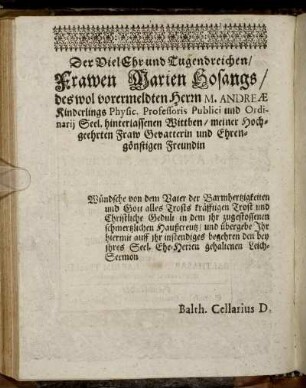 Der Viel Ehr und Tugendreichen/
Frawen Marien Hosangs/
des wol vorermeldten Herrn M. ANDREÆ
Kinderlings Physic. Professoris Publici und Ordi-
narij Seel. hinterlassenen Wittben/ meiner Hoch-
geehrten Fraw Gevatterin und Ehren-
günstigen Freundin
Wündsche von dem Vater der Barmhertzigkeiten
und Gott alles Trosts kräfftigen Trost und
Christliche Gedult in dem ihr zugestossenen
schmertzlichen Haußkreutz/ und übergebe Ihr
hiermit auff ihr instendiges begehren den bey
ihres Seel. Ehe-Herren gehaltenen Leich-
Sermon
Balth. Cellarius D.